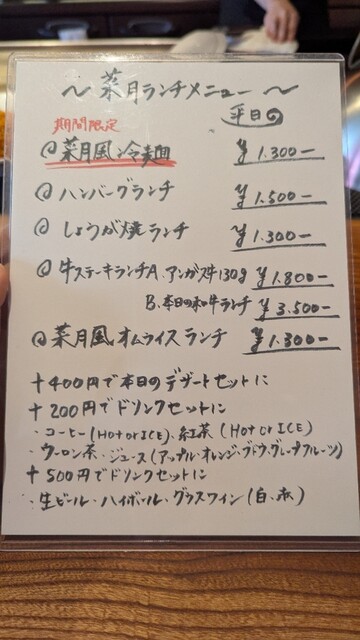 〜 菜月ランチメニュー 〜
平日の
期間限定
@菜月風冷麺 ¥1.300-
@ハンバーグランチ ¥1.500-
@しょうが焼ランチ ¥1.300-
@牛ステーキランチA.アンガス牛130g ¥1.800-
B.本日の和牛ランチ ¥3.500-
@菜月風オムライスランチ ¥1.300-
+400円で本日のデザートセットに
+200円でドリンクセットに
・コーヒー(HOT or ICE)、紅茶(HOT or ICE)
・ウーロン茶・ジュース(アップル・オレンジ・ブドウ・グレープフルーツ)
+500円でドリンクセットに
・生ビール・ハイボール・グラスワイン(白、赤)